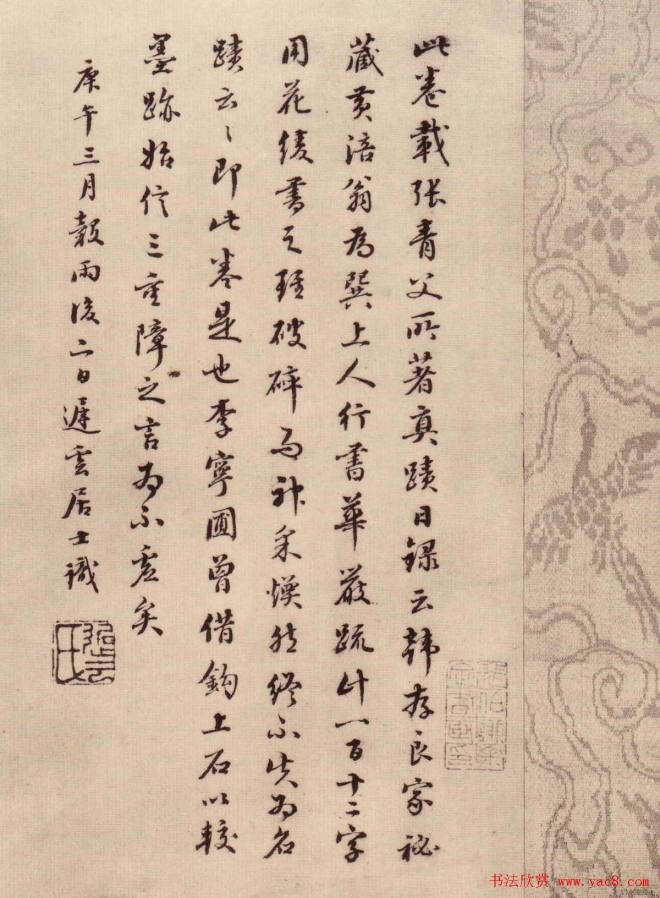 此卷載張青父所著真蹟日録云韓存良家祕
藏黃涪翁為巽上人行書華嚴疏計一百十二字
用花綾書之雖破碎而神采煥然終不失為名
蹟云々即此卷是也李寧圃曾借鈎上石以較
墨跡始信三重障之言為不虛矣
庚午三月穀雨後二日遲雲居士識
书法欣赏 www.yac8.com